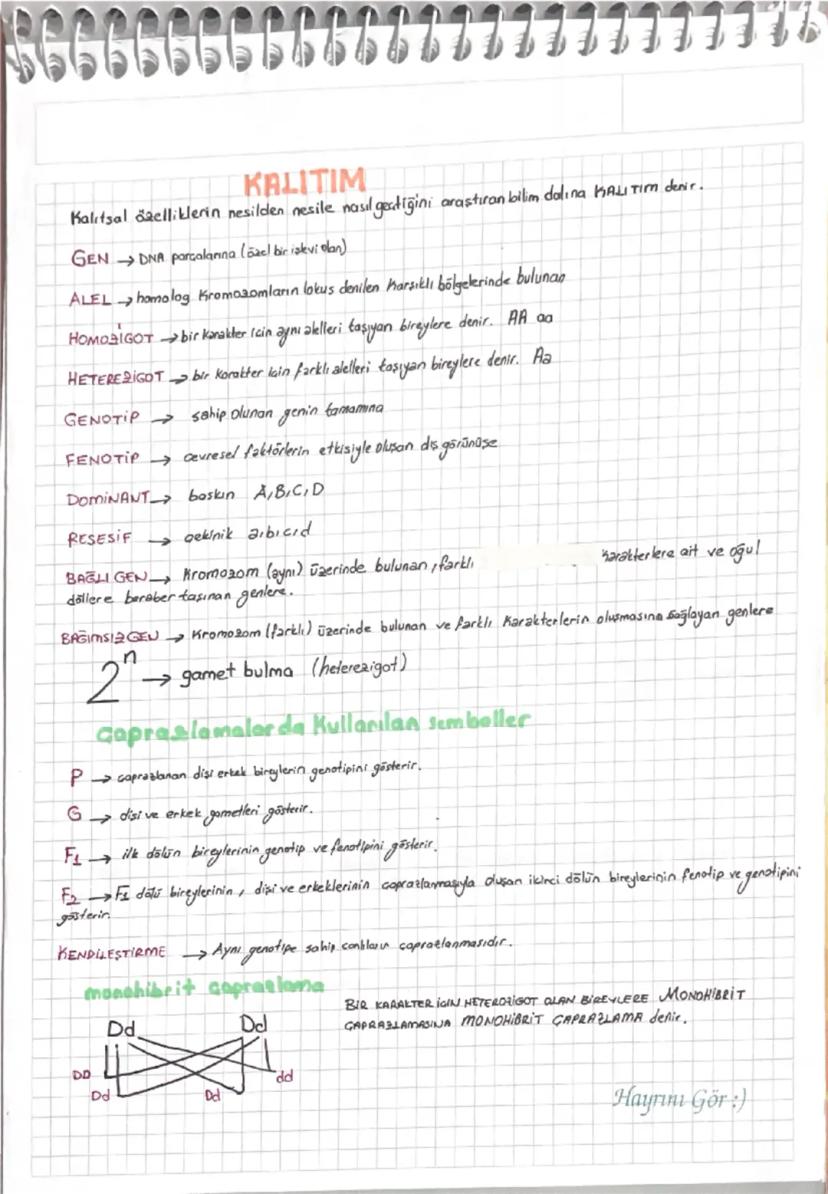 KALITIM
Kalıtsal özelliklerin nesilden nesile nasıl geçtiğini araştıran bilim dalına KALITIM denir.
GEN → DNA parçalarına (özel bir işlevi olan)
ALEL → homolog kromozomların lokus denilen karşıklı bölgelerinde bulunan
HOMOZİGOT → bir karakter için aynı alelleri taşıyan bireylere denir. AA aa
HETEREZİGOT → bir karakter için farklı alelleri taşıyan bireylere denir. Aa
GENOTİP → sahip olunan genin tamamına
FENOTİP → çevresel faktörlerin etkisiyle oluşan dış görünüşe
DOMİNANT → baskın A,B,C,D
RESESİF → çekinik a,b,c,d
BAĞLI GEN → Kromozom (aynı) üzerinde bulunan, farklı karakterlere ait ve oğul
döllere beraber taşınan genlere.
BAĞIMSIZ GEN → Kromozom (farklı) üzerinde bulunan ve farklı karakterlerin oluşmasına sağlayan genlere
2ⁿ → gamet bulma (heterezigot)
Çaprazlamalarda Kullanılan semboller
P → çaprazlanan dişi erkek bireylerin genotipini gösterir.
G → dişi ve erkek gametleri gösterir.
F1 → ilk dölün bireylerinin genotip ve fenotipini gösterir.
F2 → F1 dölü bireylerinin, dişi ve erkeklerinin çaprazlanmasıyla oluşan ikinci dölün bireylerinin fenotip ve genotipini
gösterir.
KENDİLEŞTİRME → Aynı genotipe sahip canlıların çaprazlanmasıdır.
monohibrit çaprazlama
BİR KARAKTER İÇİN HETEROZİGOT OLAN BİREYLERE MONOHİBRİT
ÇAPRAZLAMASINA MONOHİBRİT ÇAPRAZLAMA denir.
Dd Dd
DD dd
Dd Dd
Hayrını Gör :)